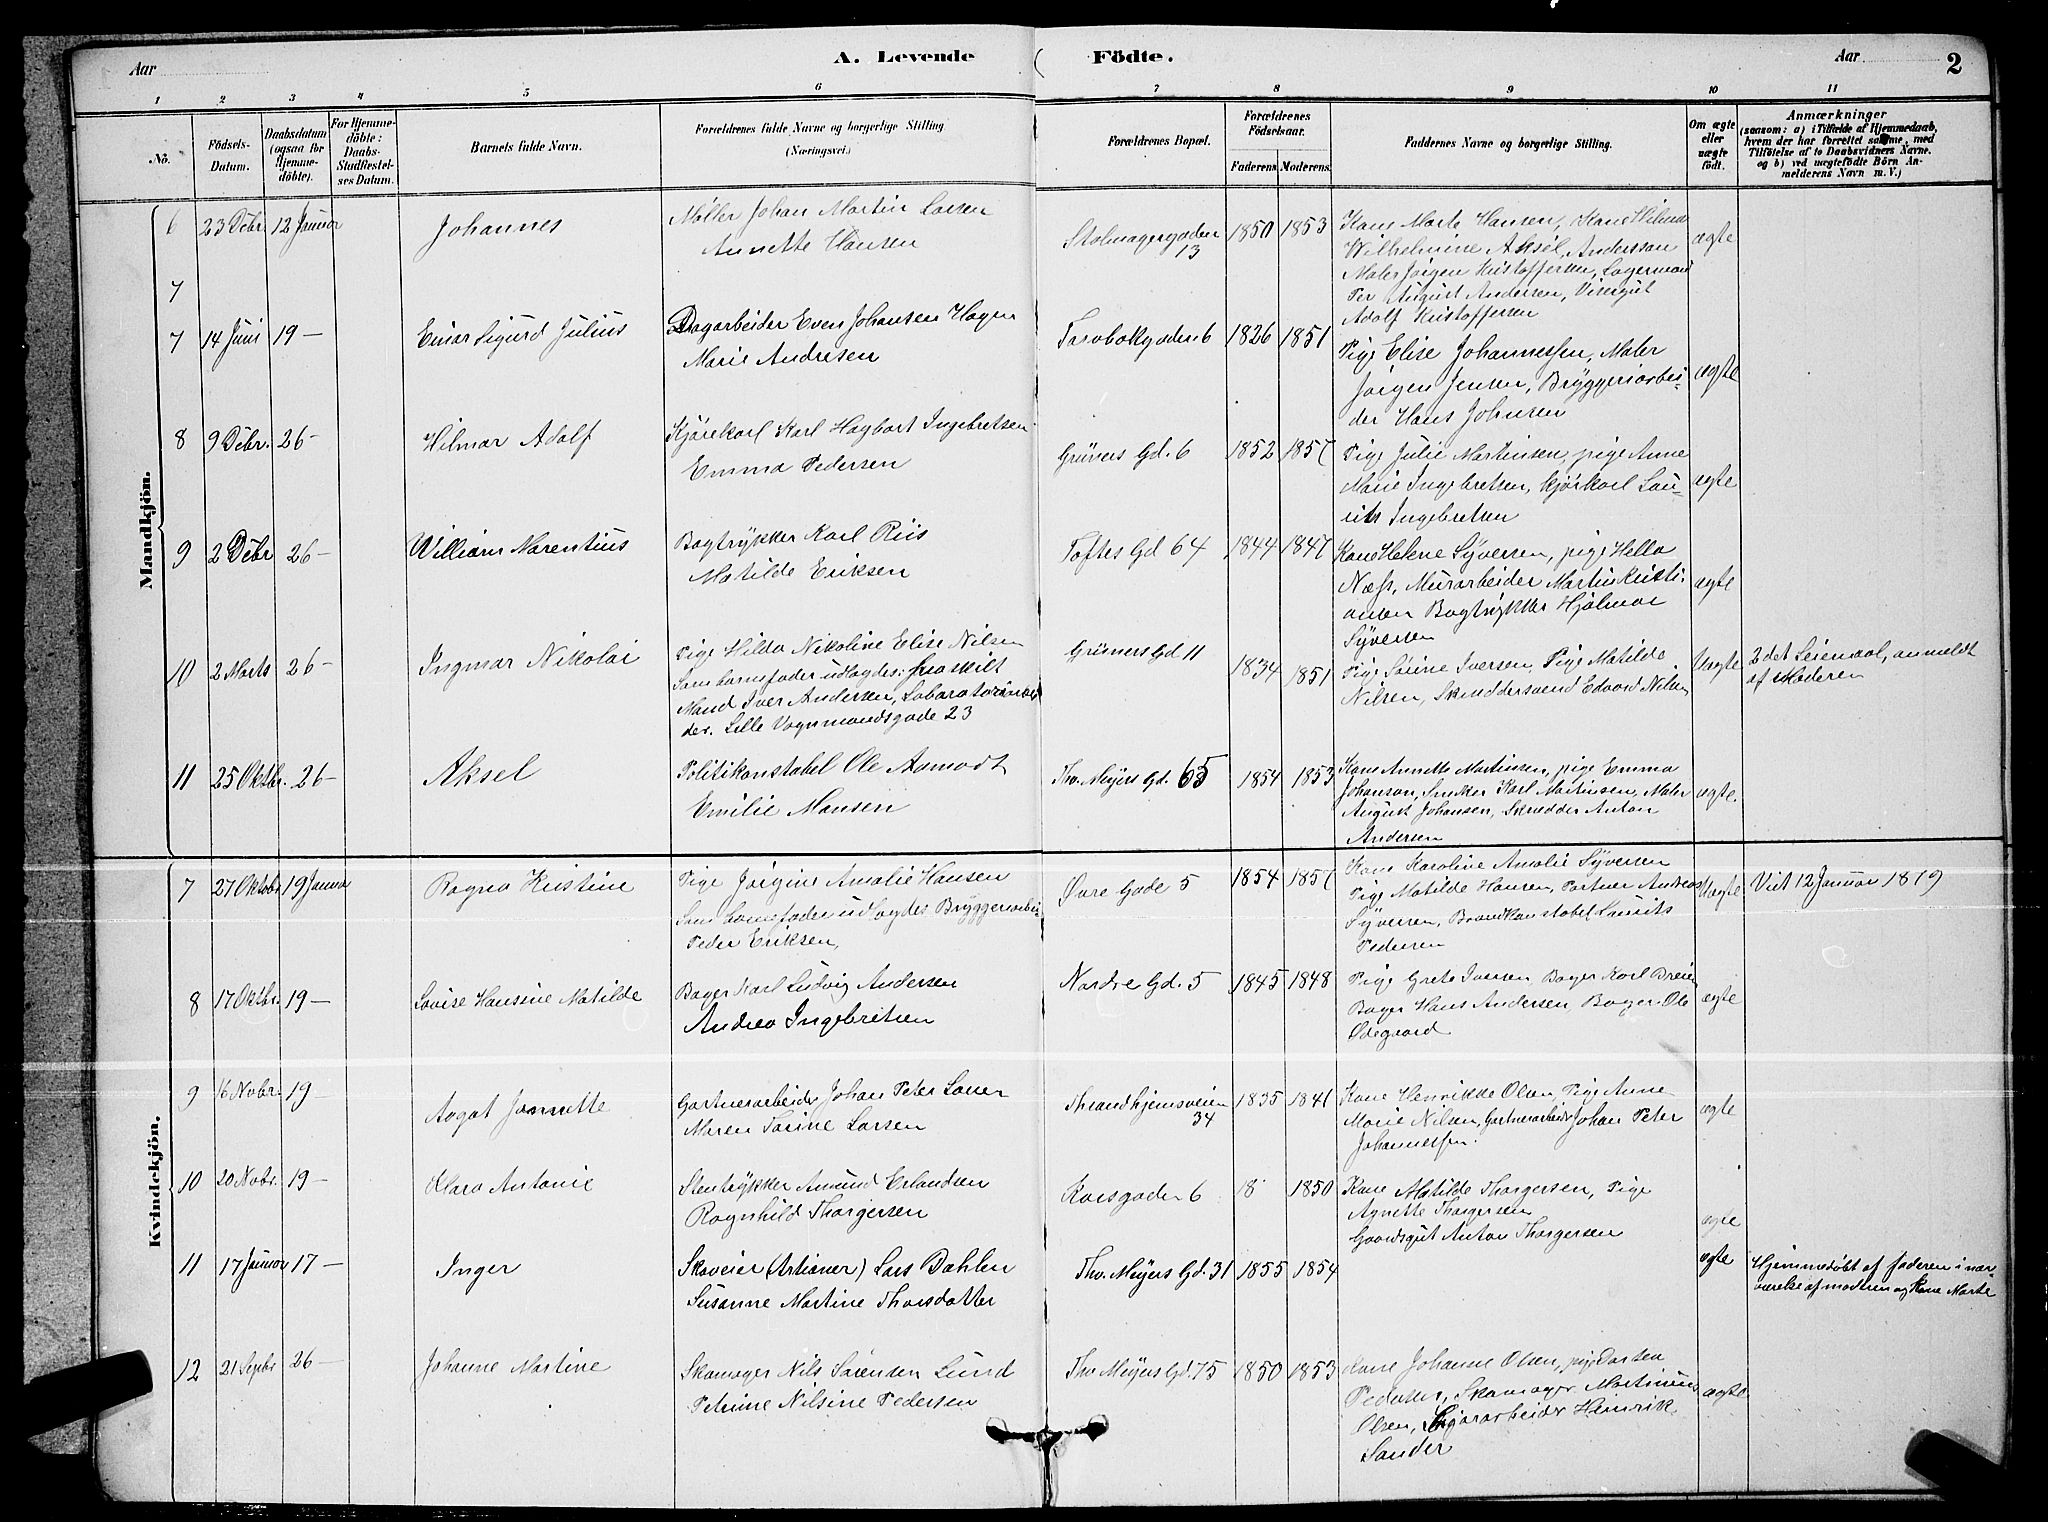 Aar
A. Levende
Födte.
Aar
2
1 2 3 4 5 6 7 8 9 10 11
No.
Födsels-Datum.
Daabsdatum (ogsaa for Hjemme-döbte).
For Hjemme-döbte: Daabs-Stadfæstel-ses Datum.
Barnets fulde Navn.
Forældrenes fulde Navne og borgerlige Stilling (Næringsvei.)
Forældrenes Bopæl.
Forældrenes Födselsaar.
Faderens. Moderens.
Faddernes Navne og borgerlige Stilling.
Om ægte eller uægte födt.
Anmærkninger
(saasom: a) i Tilfælde af Hjemmedaab,
hvem der har forrettet samme, med
Tilföielse af to Daabsvidners Navne.
og b) ved uægtefödte Börn An-
melderens Navn m. V.)
Mandkjön.
6 23 Debr 12 Januar Johannes
Møller Johan Martin Larsen
Annette Hansen
Stolmagergaden 13
1850 1853
Kone Marte Hansen, Kone Hilma
Wilhelmine Aksel, Andersson
Maler Jørgen Kristoffersen, Lagermand
Per August Andersen, Visergut
Adolf Kristoffersen
ægte
7
7 14 Juni 19 – Einar Sigurd Julius
Dagarbeider Even Johansen Hagen
Marie Andresen
6 1826 1851
Pige Elise Johannessen, Maler
Jørgen Jensen, Bryggeriarbei-
der Hans Johnsen
ægte
8 9 Debr. 26 – Hilmar Adolf
Kjørekarl Karl Hagbart Ingebretsen
Emma Pedersen
Grüners Gd. 6
1852 1857
Pige Julie Martinsen, pige Anne
Marie Ingebretsen, Kjørkarl Lau-
rits Ingebretsen
ægte
9 2 Debr 26 – William Marentius
Bogtrykker Karl Riis
Matilde Eriksen
Toftes Gd 64
1844 1847
Kone Helene Syversen, pige Hella
Næss, Murarbeider Martin Kristi-
ansen Bogtrykker Hjalmar
Syversen
ægte
10 2 Marts 26 – Ingmar Nikolai
Pige Hilda Nikoline Elise Nilsen
Som barnefader udlagdes: fraskilt
Mand Iver Andersen, Laboratoriearbei
der. Lille Vognmandsgade 23
Grüners Gd 11
1834 1851
Pige Sørine Iversen, Pige Matilde
Nilsen, Skræddersvend Edvard Nilsen
Uægte
2det Leiermaal, anmeldt
af Moderen
11 25 Oktbr. 26 – Aksel
Politikonstabel Ole Aamodt
Emilie Hansen
Thv. Meyers Gd. 65
1854 1853
Kone Annette Martinsen, pige Emma
Johansen, Snekker Karl Martinsen, Maler
August Johansen, Skrædder Anton
Andersen
ægte.
Kvindekjön.
7 27 Oktobr 19 Januar Ragna Kristine
Pige Jørgine Amalie Hansen
Som barnefader udlagdes Bryggeriarbei-
Peder Eriksen,
Øvre Gade 5
1854 1857
Kone Karoline Amalie Syversen
Pige Matilde Hansen, Partner Andreas
Syversen, Brandkonstabel Laurits
Pedersen
Uægte
Viet 12 Januar 1879
8 17 Oktbr. 19 – Lovise Hansine Matilde
Bager Karl Ludvig Andersen
Andrea Ingebretsen
Nordre Gd. 5
1845 1848
Pige Grete Iversen, Bager Karl Breien
Bager Hans Andersen, Bager Ole
Ødegaard
ægte
9 16 Nobr. 19 – Aagot Jannette
Gartnerarbeider Johan Peter Larsen
Maren Torine Larsen
Thrandhjemsveien 34
1835 1841
Kone Henrikke Olsen, Pige Anne
Marie Nilsen, Gartnerarbeider Johan Peter
Johannessen.
ægte
10 20 Nobr. 19 – Klara Antonie
Stentrykker Amund Erlandsen
Ragnhild Thorgersen
Korsgaden 6
18 1850
Kone Matilde Thorgersen, Pige
Agnette Thorgersen
Gaardsgut Anton Thorgersen
ægte
11 17 Januar 17 – Inger
Skoveier (Artianer) Lars Dahlen
Susanne Martine Thorsdatter
Thv. Meyers Gd. 31
1855 1854
ægte
Hjemmedøbt af faderen i nær-
værelse af modren og Kone Marte
12 21 Septbr 26 – Johanne Martine
Skomager Nils Sørensen Lund
Petrine Nilsine Pedersen
Thv Meyers Gd. 75
1850 1853
Kone Johanne Olsen, pige Dorthea
Pedersen, Skomager Martinius
Olsen, Sagarbeider Heinrik
Sander
ægte